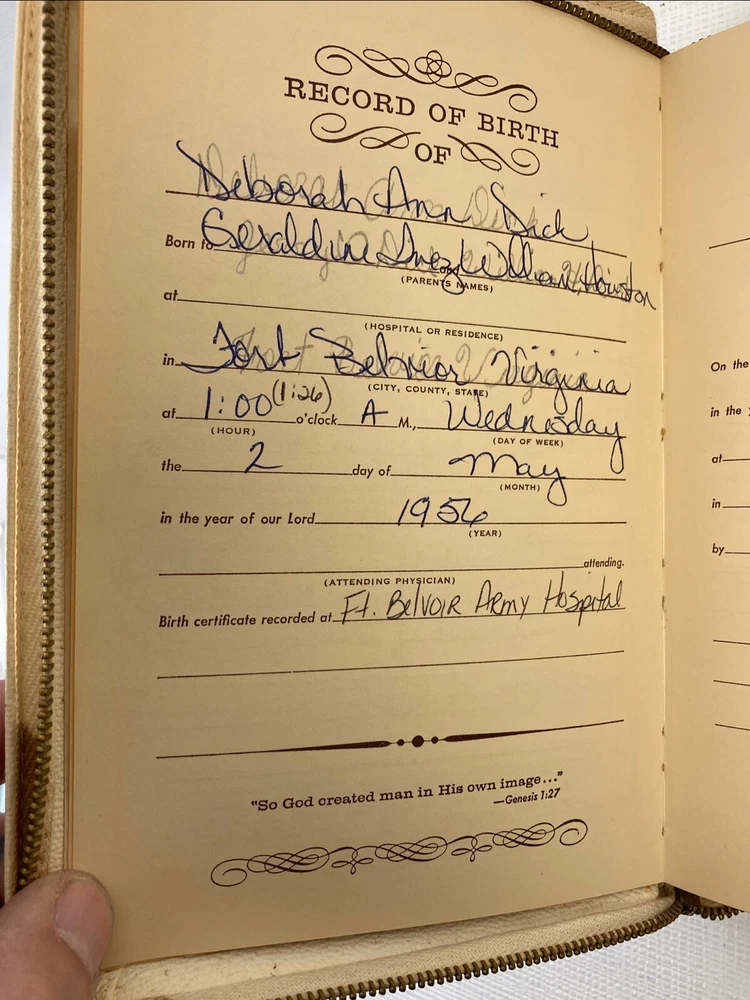 RECORD OF BIRTH
OF
Deborah Ann Dick
Born to Geraldine Inez and William Houston
(PARENTS NAMES)
at
(HOSPITAL OR RESIDENCE)
in Fort Belvior Virginia
(CITY, COUNTY, STATE)
at 1:00 (1:26) o'clock A M., Wednesday
(HOUR) (DAY OF WEEK)
the 2 day of May
(MONTH)
in the year of our Lord 1956
(YEAR)
attending.
(ATTENDING PHYSICIAN)
Birth certificate recorded at Ft. Belvoir Army Hospital
"So God created man in His own image..."
—Genesis 1:27
On the
in the
at
in
by